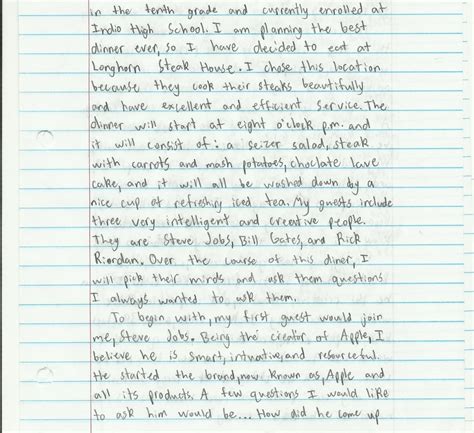 in the tenth grade and currently enrolled at
Indio High School. I am planning the best
dinner ever, so I have decided to eat at
Longhorn Steak House. I chose this location
because they cook their steaks beautifully
and have excellent and efficient service. The
dinner will start at eight o'clock p.m. and
it will consist of: a seizer salad, steak
with carrots and mash potatoes, choclate lave
cake, and it will all be washed down by a
nice cup of refreshing iced tea. My guests include
three very intelligent and creative people.
They are Steve Jobs, Bill Gates, and Rick
Riordan. Over the course of this diner, I
will pick their minds and ask them questions
I always wanted to ask them.
To begin with, my first guest would join
me, Steve Jobs. Being the creator of Apple, I
believe he is smart, intuative, and resourceful.
He started the brand, now known as, Apple and
all its products. A few questions I would like
to ask him would be... How did he come up